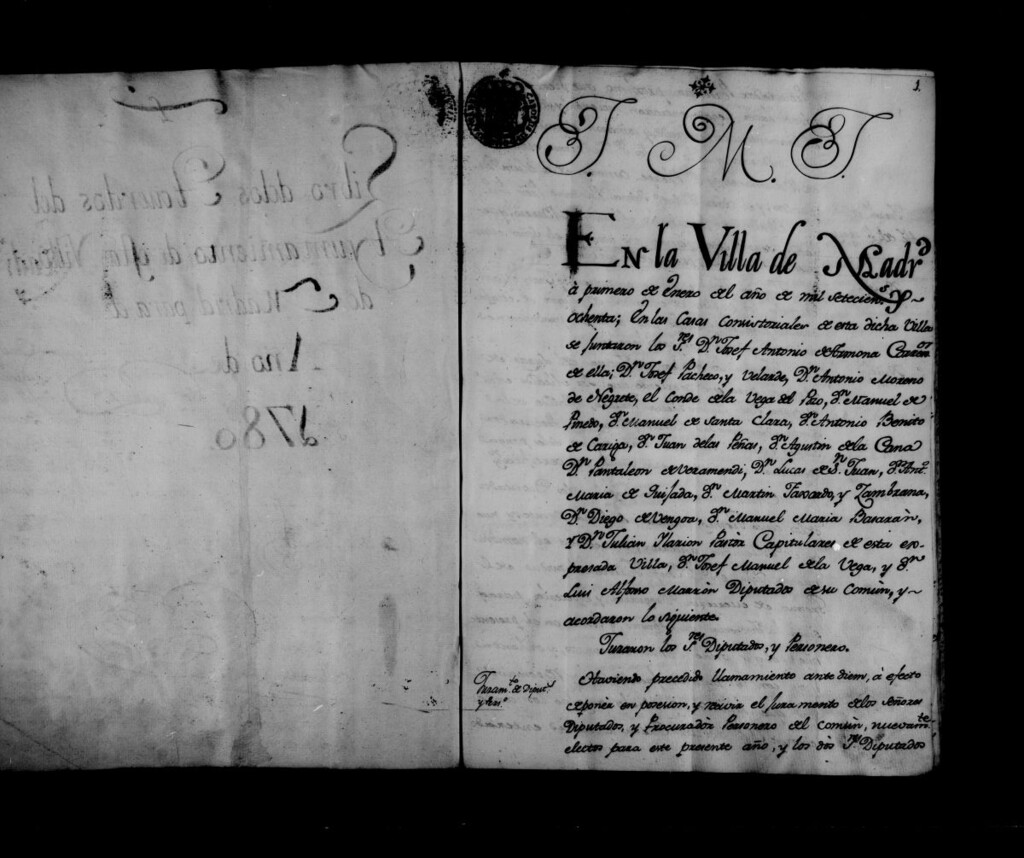 Libro delos Acuerdos del
Ayuntamiento de esta Villa
de Madrid para el
Año de
1780
1.
J. M. J.
En la Villa de Madr.d
à primero de Enero del año de mil setecien.s y
ochenta; En las Casas Consistoriales de esta dicha Villa
se juntaron los S.res D.n Josef Antonio de Armona Corr.or
de ella; D.n Josef Pacheco, y Velarde, D.n Antonio Moreno
de Negrete, el Conde de la Vega del Pozo, D.n Manuel de
Pinedo, D.n Manuel de Santa Clara, D.n Antonio Benito
de Cariga, D.n Juan delas Peñas, D.n Agustin de la Cana
D.n Pantaleon de Veramendi, D.n Lucas de S.n Juan, D.n Ant.o
Maria de Quijada, D.n Martin Faxardo, y Zambrana,
D.n Diego de Vengoa, D.n Manuel Maria Basaràn,
Y D.n Julian Ylarion Pastòr Capitulares de esta ex-
presada Villa, D.n Josef Manuel de la Vega, y D.n
Luis Alfonso Marròn Diputados de su Comùn, y
acordaron lo siguiente.
Juraron los S.res Diputados, y Personero.
Juram.to de Diput.s
y Pers.o
Haviendo precedido llamamiento ante diem, à efecto
de poner en posesion, y recivir el juramento de los Señores
Diputados, y Procuradòr Personero del comùn, nuevam.te
electos para este presente año, y los dòs S.res Diputados